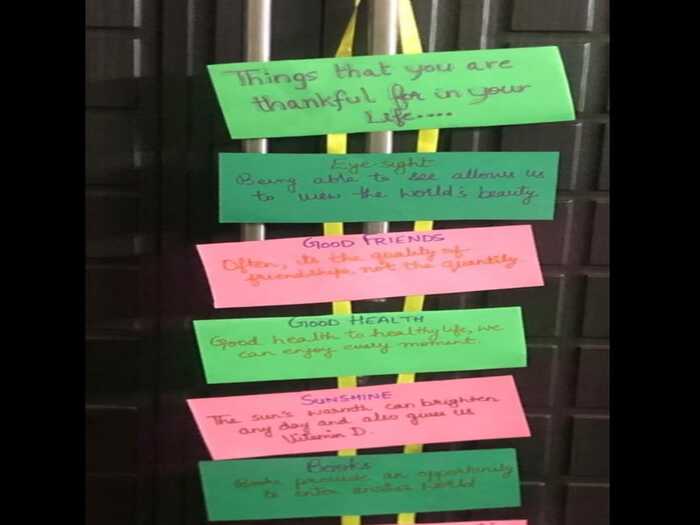 Things that you are
thankful for in your
Life....
Eye sight
Being able to see allows us
to view the world's beauty
GOOD FRIENDS
Often, its the quality of
friendships, not the quantity
GOOD HEALTH
Good health to healthy life, we
can enjoy every moment.
SUNSHINE
The sun's warmth can brighten
any day and also gives us
Vitamin D.
Books
Books provide an opportunity
to enter another world